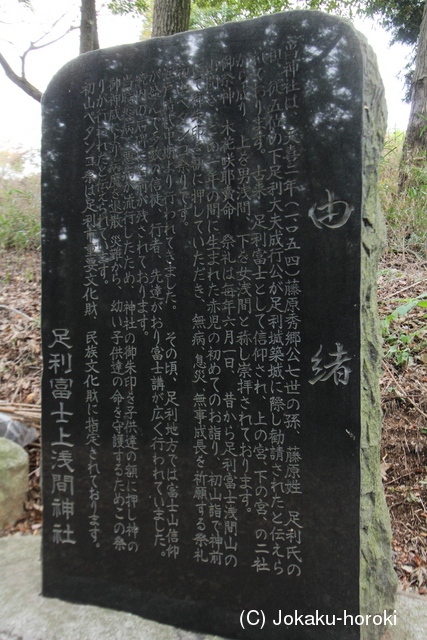 由緒
当神社は、天喜二年(一〇五四)藤原秀郷公七世の孫、藤原姓 足利氏の
の下足利大夫成行公が足利城築城に際し勧請されたと伝えら
れております。古来、足利富士として信仰され、上の宮、下の宮の二社
上を男浅間、下を女浅間と称し崇拝されております。
御祭神 木花咲耶貴命 祭礼は毎年六月一日、昔から足利富士浅間山の
年の間に生まれた赤児の初めてのお詣り、初山詣で神前
押していただき、無病、息災、無事成長を祈願する祭礼
行われてきました。 その頃、足利地方では富士山信仰
の信徒、行者、先達がおり富士講が広く行われていました。
が残されております。
流行したため 神社の御朱印を子供達の額に押し神の
災難から、幼い子供達の命を守護するためこの祭
りが行われたと伝えられています。
初山ペタンコ祭は足利市重要文化財、民族文化財に指定されております。
足利富士上浅間神社
(C) Jokaku-horoki